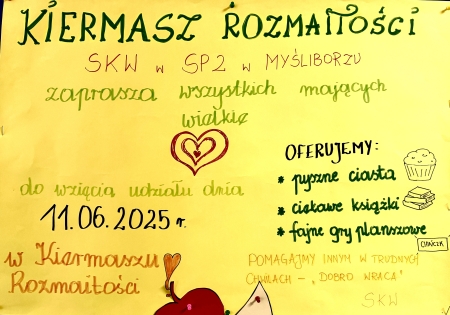 KIERMASZ ROZMAITOŚCI
SKW w SP2 w MYŚLIBORZU
zaprasza wszystkich mających
wielkie
do wzięcia udziału dnia
11.06.2025 r.
w Kiermaszu
Rozmaitości
OFERUJEMY:
* pyszne ciasta
* ciekawe książki
* fajne gry planszowe
CHIŃCZYK
POMAGAJMY INNYM W TRUDNYCH
CHWILACH - „DOBRO WRACA"
SKW